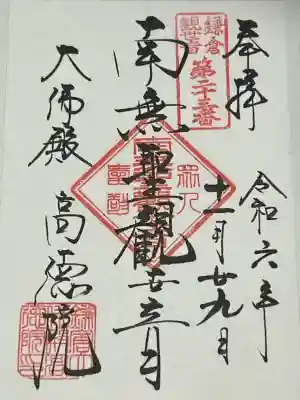 奉拝
令和六年
十一月廿九日
鎌倉
第二十三番
南無聖觀世音
大佛殿
高徳院